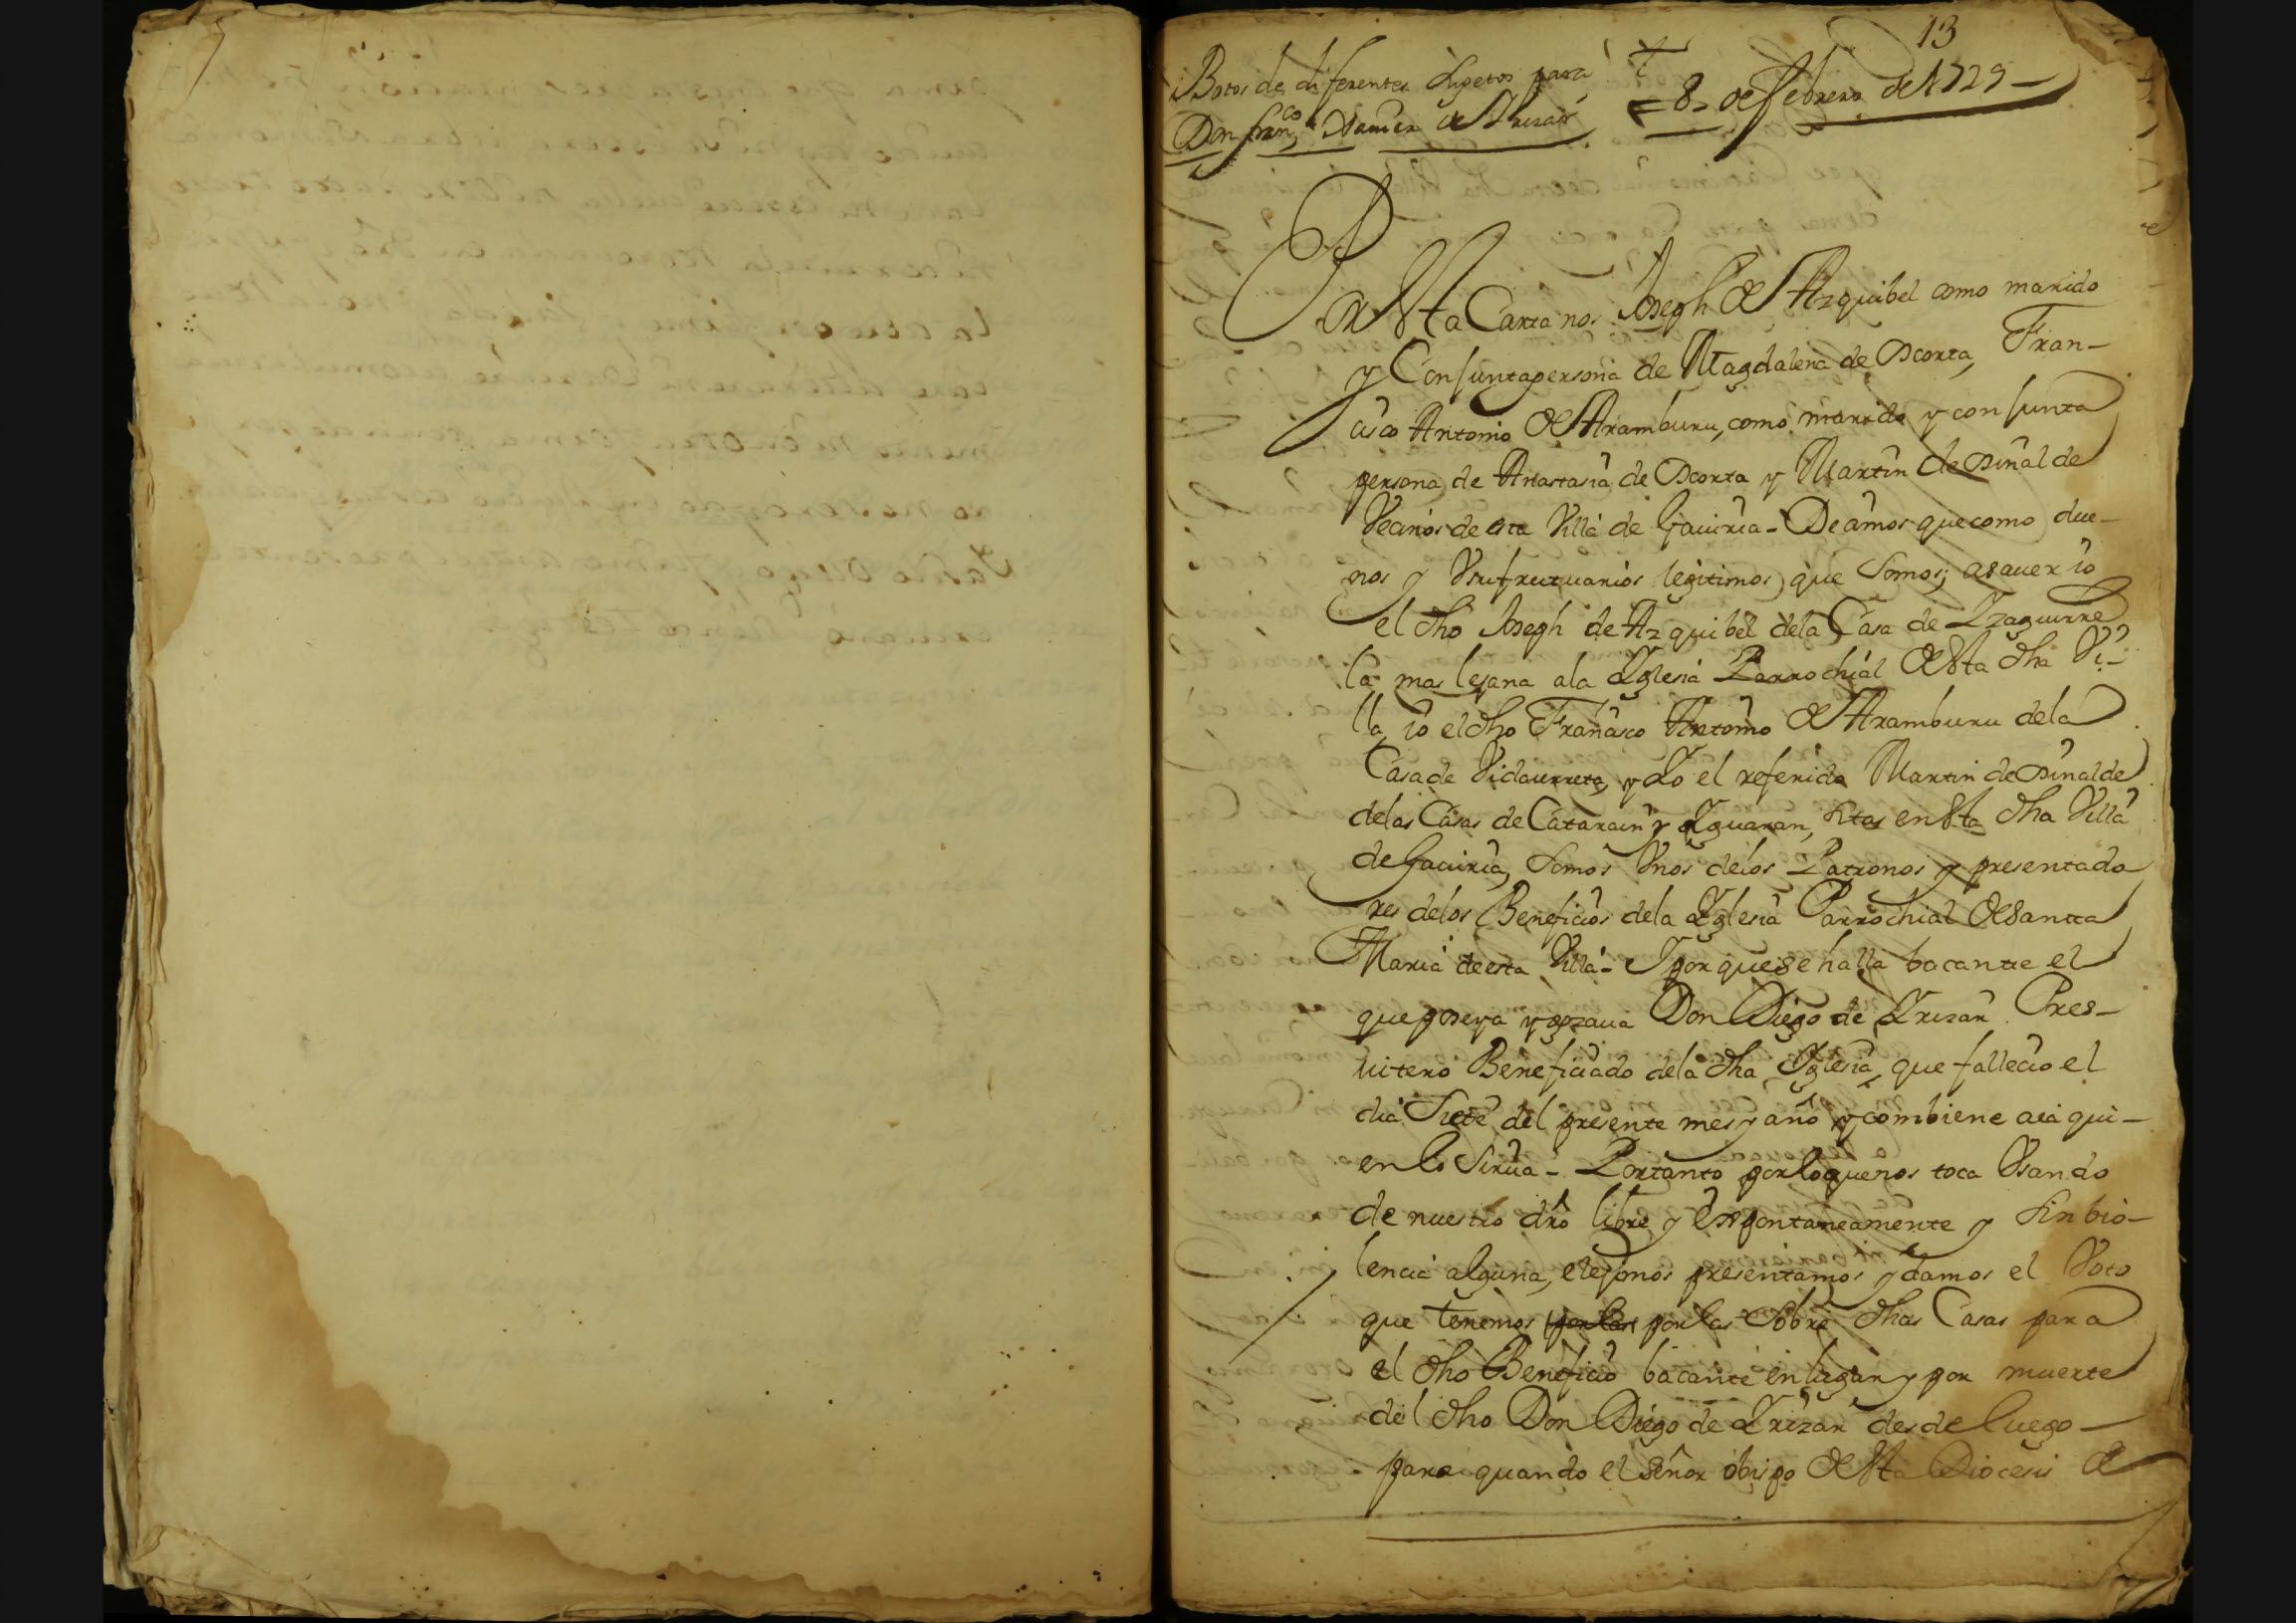 13
Botos de diferentes Sugetos para
Don Franco Xavier de Yrizar
8 de febrero de 1729
Por Esta Carta nos Joseph de Azquibel como marido
y Conjunta persona de Magdalena de Scorta, Fran-
cisco Antonio de Aramburu, como marido y conjunta
persona de Anastasia de Scorta y Martin de Sinalde
Vecinos de esta Villa de Gaviria - Decimos que como due-
nos y Vsufrutuarios legitimos que Somos, asaver io
el dho Joseph de Azquibel dela Casa de Yzaguirre
la mas lejana ala Yglesia Parrochial de Esta dha Vi-
lla, io el dho Francisco Antonio de Aramburu dela
Casa de Vidaurreta, y Yo el referido Martin de Sinalde
delas Casas de Catarain y Yguaran, sitas en Esta dha Villa
de Gaviria, Somos Vnos delos Patronos y presentado
res delos Beneficios dela Yglesia Parrochial de Santta
Maria de esta Villa - Y por que se halla bacante el
que poseya y gozaua Don Diego de Yrizar Pres-
uitero Beneficiado dela dha Yglesia, que fallecio el
dia Siete del presente mes y año y combiene aia qui-
en lo Sirua - Portanto por loquenos toca Vsando
de nuestro dro libre y Espontaneamente y Sin bio-
lencia alguna, elejimos presentamos y damos el Voto
que tenemos por las por las Sobre dhas Casas para
el dho Beneficio bacante en lugar y por muerte
del dho Don Diego de Yrizar desde luego -
para quando el Señor obispo de Esta Diocesis de